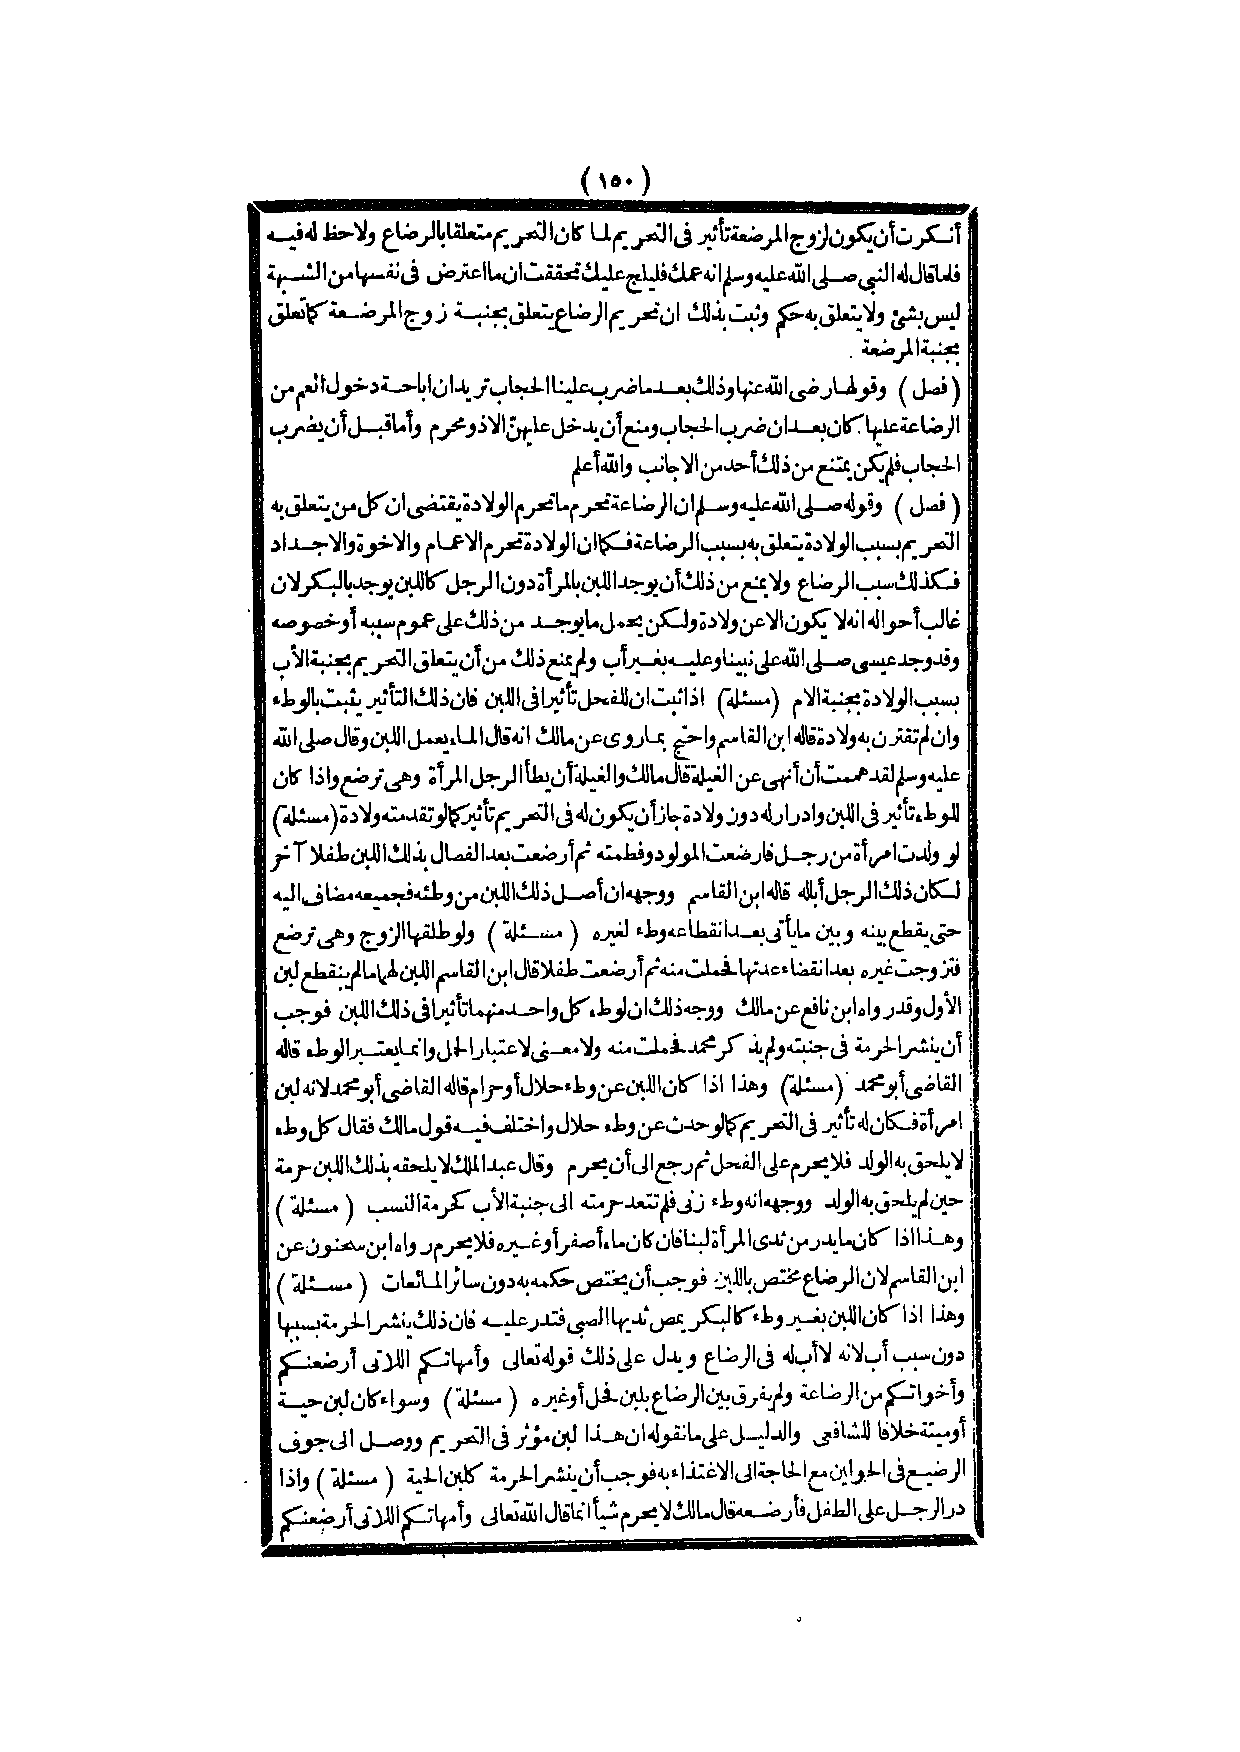 ( ١٥٠ )
أنكرت أن يكون لزوج المرضعة تأثير فى التحريم لما كان التحريم متعلقا بالرضاع ولا حظ له فيه
فلما قال له النبي صلى الله عليه وسلم انه عمك فليلج عليك تحققت ان ما اعترض فى نفسها من الشبهة
ليس بشئ ولا يتعلق به حكم وثبت بذلك ان تحريم الرضاع يتعلق بجنبة زوج المرضعة كما تعلق
بجنبة المرضعة .
( فصل ) وقولها رضى الله عنها وذلك بعد ما ضرب علينا الحجاب تريد ان اباحة دخول العم من
الرضاعة عليها كان بعد ان ضرب الحجاب ومنع أن يدخل عليهن الا ذو محرم وأما قبل أن يضرب
الحجاب فلم يكن يمتنع من ذلك أحد من الاجانب والله أعلم
( فصل ) وقوله صلى الله عليه وسلم ان الرضاعة تحرم ما تحرم الولادة يقتضى ان كل من يتعلق به
التحريم بسبب الولادة يتعلق به بسبب الرضاعة فكما ان الولادة تحرم الاعمام والاخوة والاجداد
فكذلك سبب الرضاع ولا يمنع من ذلك أن يوجد اللبن بالمرأة دون الرجل كاللبن يوجد بالبكر لان
غالب أحواله انه لا يكون الا عن ولادة ولكن يحمل ما يوجد من ذلك على عموم سببه أو خصوصه
وقد وجد عيسى صلى الله على نبينا وعليه بغير أب ولم يمنع ذلك من أن يتعلق التحريم بجنبة الأب
بسبب الولادة بجنبة الام (مسئلة) اذا ثبت ان للفحل تأثيرا فى اللبن فان ذلك التأثير يثبت بالوطء
وان لم تقترن به ولادة قاله ابن القاسم واحتج بما روى عن مالك انه قال الماء يعمل اللبن وقال صلى الله
عليه وسلم لقد هممت أن أنهى عن الغيلة قال مالك والغيلة أن يطأ الرجل المرأة وهى ترضع واذا كان
للوطء تأثير فى اللبن وادرار له دون ولادة جاز أن يكون له فى التحريم تأثير كما لو تقدمته ولادة (مسئلة)
لو ولدت امرأة من رجل فارضعت المولود وفطمته ثم أرضعت بعد الفصال بذلك اللبن طفلا آخر
لكان ذلك الرجل أباله قاله ابن القاسم ووجهه ان أصل ذلك اللبن من وطئه فجميعه مضاف اليه
حتى يقطع بينه وبين ما يأتى بعد انقطاعه وطء لغيره ( مسئلة ) ولو طلقها الزوج وهى ترضع
فتزوجت غيره بعد انقضاء عدتها فحملت منه ثم أرضعت طفلا قال ابن القاسم اللبن لهما ما لم ينقطع لبن
الأول وقد رواه ابن نافع عن مالك ووجه ذلك ان لوطء كل واحد منهما تأثيرا فى ذلك اللبن فوجب
أن ينشر الحرمة فى جنبته ولم يذكر محمد فحملت منه ولا معنى لاعتبار الحمل وانما يعتبر الوطء قاله
القاضى أبو محمد (مسئلة) وهذا اذا كان اللبن عن وطء حلال أو حرام قاله القاضى أبو محمد لانه لبن
امرأة فكان له تأثير فى التحريم كما لو حدث عن وطء حلال واختلف فيه قول مالك فقال كل وطء
لا يلحق به الولد فلا يحرم على الفحل ثم رجع الى أن يحرم وقال عبد الملك لا يلحقه بذلك اللبن حرمة
حين لم يلحق به الولد ووجهه انه وطء زنى فلم تتعد حرمته الى جنبة الأب كحرمة النسب ( مسئلة )
وهذا اذا كان ما يدر من ثدى المرأة لبنا فان كان ماء أصفر أو غيره فلا يحرم رواه ابن سحنون عن
ابن القاسم لان الرضاع مختص باللبن فوجب أن يختص حكمه به دون سائر المائعات ( مسئلة )
وهذا اذا كان اللبن بغير وطء كالبكر يمص ثديها الصبى فتدر عليه فان ذلك ينشر الحرمة بسببها
دون سبب أب لانه لا أب له فى الرضاع ويدل على ذلك قوله تعالى وأمهاتكم اللاتى أرضعنكم
وأخواتكم من الرضاعة ولم يفرق بين الرضاع بلبن فحل أو غيره ( مسئلة ) وسواء كان لبن حية
أو ميتة خلافا للشافعى والدليل على ما نقوله ان هذا لبن مؤثر فى التحريم ووصل الى جوف
الرضيع فى الحولين مع الحاجة الى الاغتذاء به فوجب أن ينشر الحرمة كلبن الحية ( مسئلة ) واذا
در الرجل على الطفل فأرضعه قال مالك لا يحرم شيأ انما قال الله تعالى وأمهاتكم اللاتى أرضعنكم